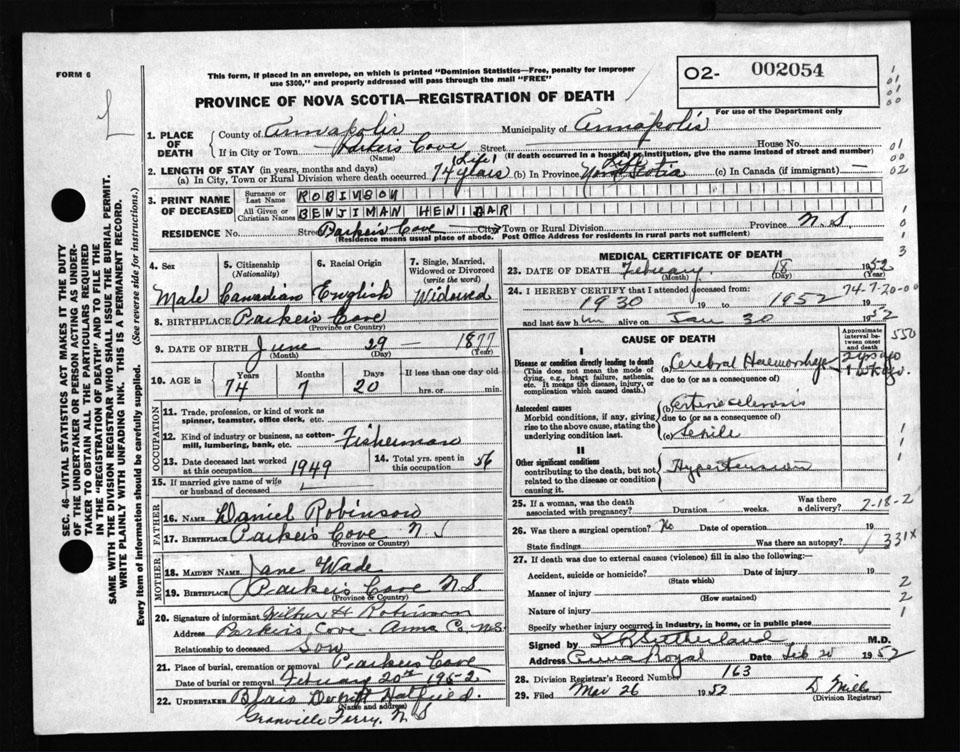 FORM 6
This form, if placed in an envelope, on which is printed "Dominion Statistics—Free, penalty for improper
use $300," and properly addressed will pass through the mail "FREE"
O2- 002054
For use of the Department only
PROVINCE OF NOVA SCOTIA—REGISTRATION OF DEATH
1. PLACE OF DEATH
County of Annapolis Municipality of Annapolis
If in City or Town Parkers Cove Street House No.
(Name) (If death occurred in a hospital or institution, give the name instead of street and number)
2. LENGTH OF STAY (in years, months and days)
(a) In City, Town or Rural Division where death occurred 74 years (Life) (b) In Province Life Nova Scotia (c) In Canada (if immigrant) —
3. PRINT NAME OF DECEASED
Surname or Last Name ROBINSON
All Given or Christian Names BENJIMAN HENIDAR
RESIDENCE No. Street Parkers Cove City, Town or Rural Division Province N.S
(Residence means usual place of abode. Post Office Address for residents in rural parts not sufficient)
4. Sex Male
5. Citizenship (Nationality) Canadian
6. Racial Origin English
7. Single, Married, Widowed or Divorced (write the word) Widowed
8. BIRTHPLACE Parkers Cove
(Province or Country)
9. DATE OF BIRTH June 29 1877
(Month) (Day) (Year)
10. AGE in Years 74 Months 7 Days 20 If less than one day old hrs. or min.
OCCUPATION
11. Trade, profession, or kind of work as spinner, teamster, office clerk, etc.
12. Kind of industry or business, as cotton-mill, lumbering, bank, etc. Fisherman
13. Date deceased last worked at this occupation 1949
14. Total yrs. spent in this occupation 56
15. If married give name of wife or husband of deceased
FATHER
16. NAME Daniel Robinson
17. BIRTHPLACE Parkers Cove N.S
(Province or Country)
MOTHER
18. MAIDEN NAME Jane Wade
19. BIRTHPLACE Parkers Cove N.S.
(Province or Country)
20. Signature of informant Wilbur H Robinson
Address Parkers Cove. Anna Co. N.S.
Relationship to deceased Son
21. Place of burial, cremation or removal Parkers Cove
Date of burial or removal February 20th 1952
22. UNDERTAKER Hatfield.
(Name and address)
Granville Ferry, N S
MEDICAL CERTIFICATE OF DEATH
23. DATE OF DEATH February 18 1952
(Month) (Day)
24. I HEREBY CERTIFY that I attended deceased from
1930 19 to 1952
and last saw him alive on Jan 30 1952
74-7-20-00
CAUSE OF DEATH
Approximate interval between onset and death
550
I
Disease or condition directly leading to death
(This does not mean the mode of dying, e.g., heart failure, asthenia, etc. It means the disease, injury, or complication which caused death.)
(a) Cerebral Haemorrhage 2 yrs ago 1 wk ago.
due to (or as a consequence of)
Antecedent causes
Morbid conditions, if any, giving rise to the above cause, stating the underlying condition last.
(b) Arteriosclerosis
due to (or as a consequence of)
(c) Senile
II
Other significant conditions
contributing to the death, but not related to the disease or condition causing it.
Hypertension
25. If a woman, was the death associated with pregnancy? Duration weeks. Was there a delivery?
2-18-2
26. Was there a surgical operation? No Date of operation 19
State findings Was there an autopsy?
331X
27. If death was due to external causes (violence) fill in also the following:—
Accident, suicide or homicide? Date of injury 19
(State which)
Manner of injury
(How sustained)
Nature of injury
Specify whether injury occurred in industry, in home, or in public place
Signed by Sutherland M.D.
Address Anna Royal Date Feb 20 1952
28. Division Registrar's Record Number 163
29. Filed Mar 26 1952 D Mills
SEC. 46—VITAL STATISTICS ACT MAKES IT THE DUTY
OF THE UNDERTAKER OR PERSON ACTING AS UNDER-
TAKER TO OBTAIN ALL THE PARTICULARS REQUIRED
IN THE "REGISTRATION OF DEATH" AND TO FILE THE
SAME WITH THE DIVISION REGISTRAR WHO SHALL ISSUE THE BURIAL PERMIT.
WRITE PLAINLY WITH UNFADING INK. THIS IS A PERMANENT RECORD.
Every item of information should be carefully supplied. (See reverse side for instructions.)